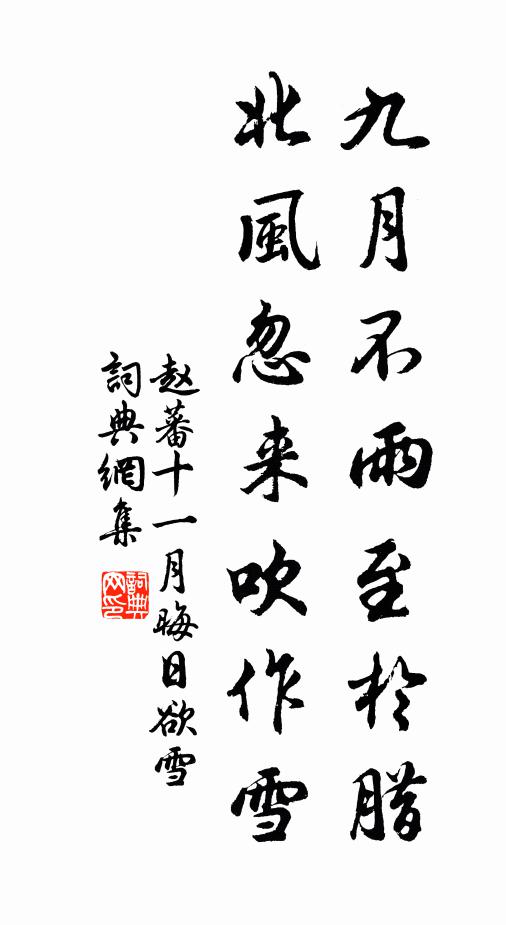 九月不雨至於腊
北風忽来吹作雪
赵蕃十一月晦日欲雪
詞典網集
詞典网印